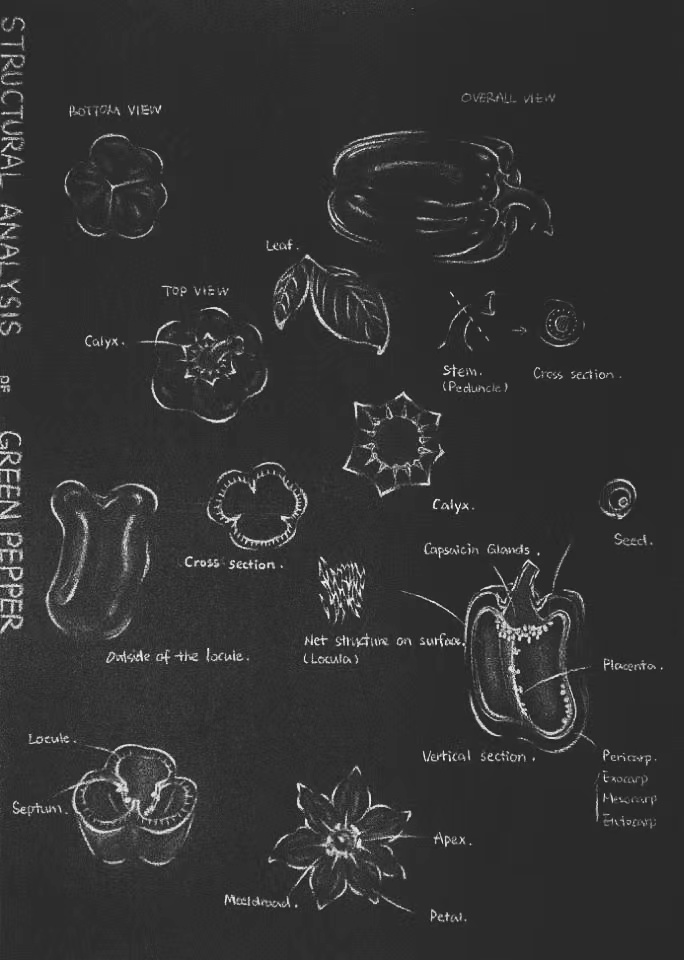 STRUCTURAL ANALYSIS OF GREEN PEPPER
BOTTOM VIEW
OVERALL VIEW
Leaf.
TOP VIEW
Calyx.
Stem.
(Peduncle)
Cross section.
Calyx.
Seed.
Cross section.
Capsaicin Glands.
Net structure on surface.
(Locula)
Outside of the locule.
Placenta.
Vertical section.
Pericarp.
Exocarp
Mesocarp
Locule.
Septum.
Apex.
Petal.